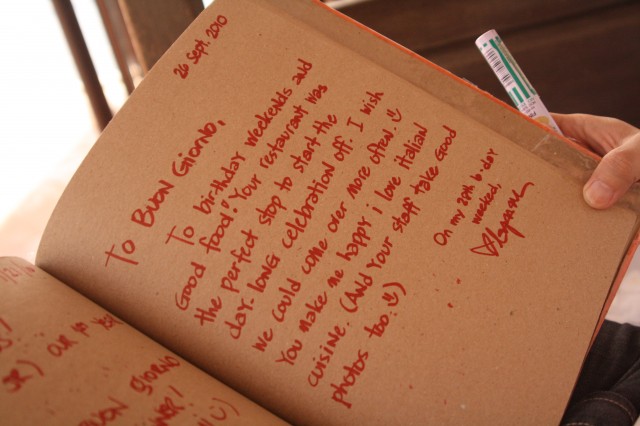 26 Sept. 2010
To BUON GIORNO,
To birthday weekends and
Good food! Your restaurant was
the perfect stop to start the
day-long celebration off. I wish
we could come over more often. :)
You make me happy i love italian
cuisine. (And your staff take Good
photos too! :))
On my 20th b-day
weekend,
OUR
BUON GIORNO